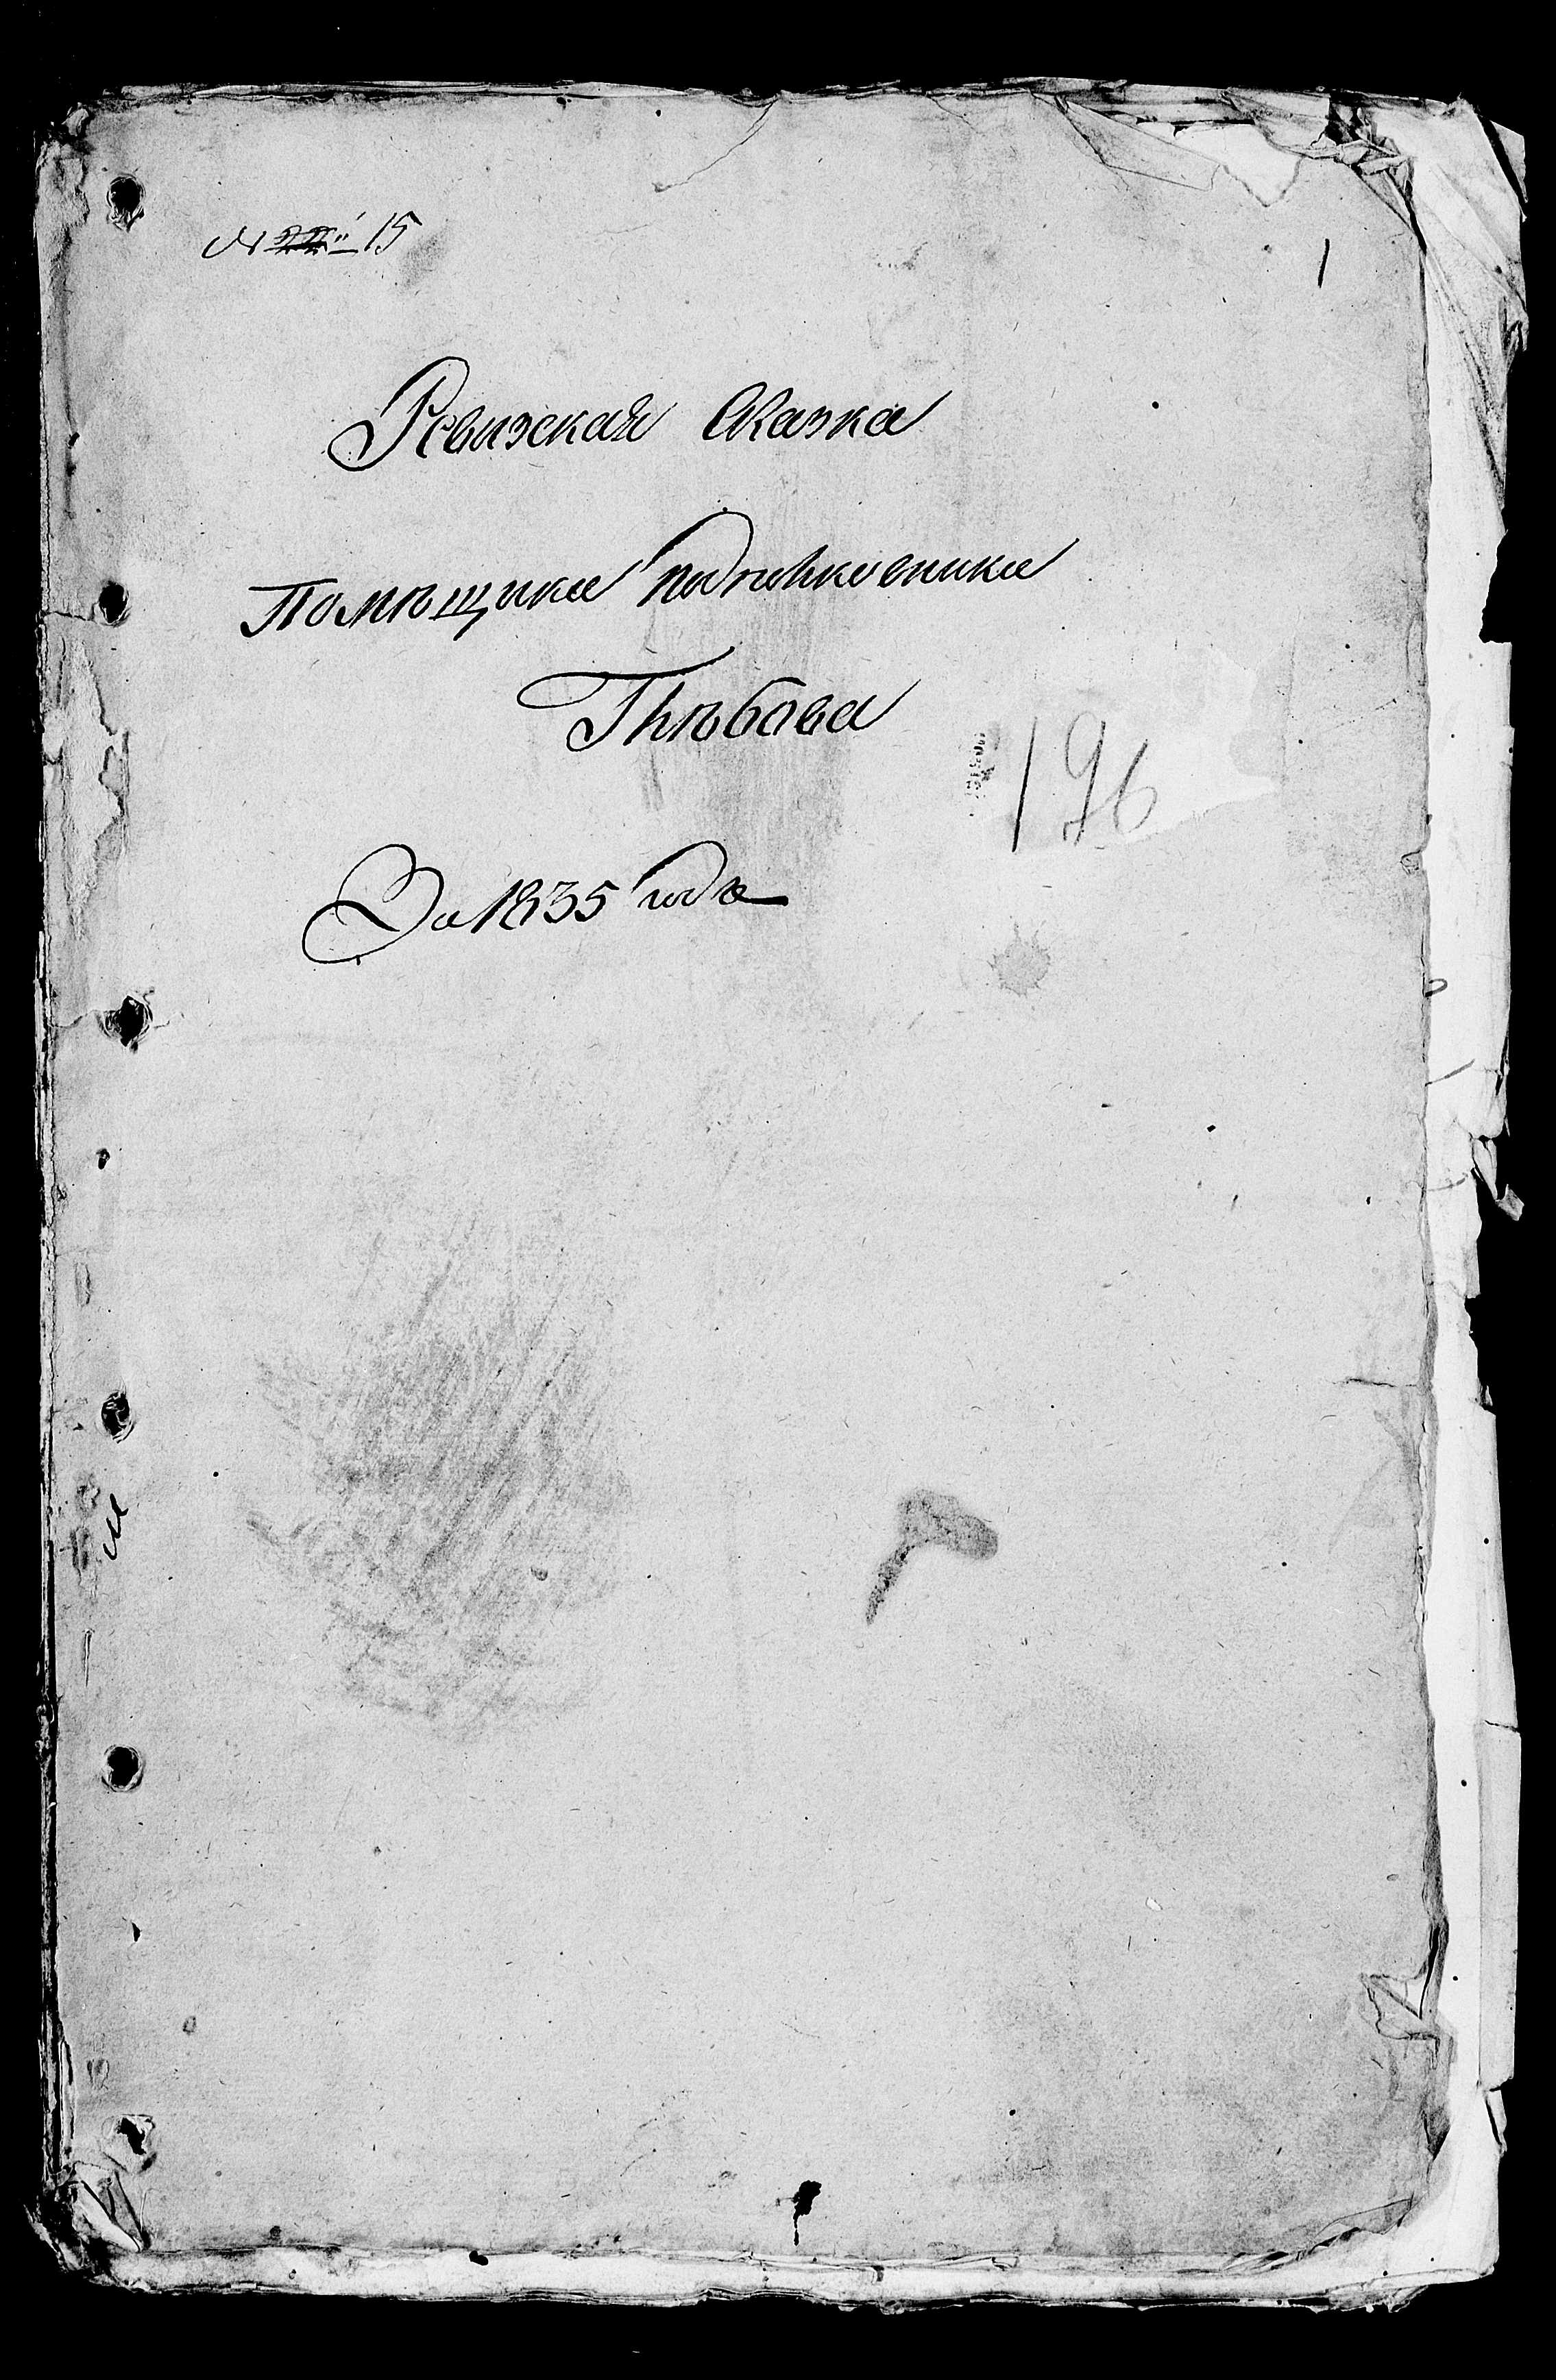 № 15
1
Ревизская Сказка
Помѣщика подполковника
Глѣбова
196
За 1835 годъ